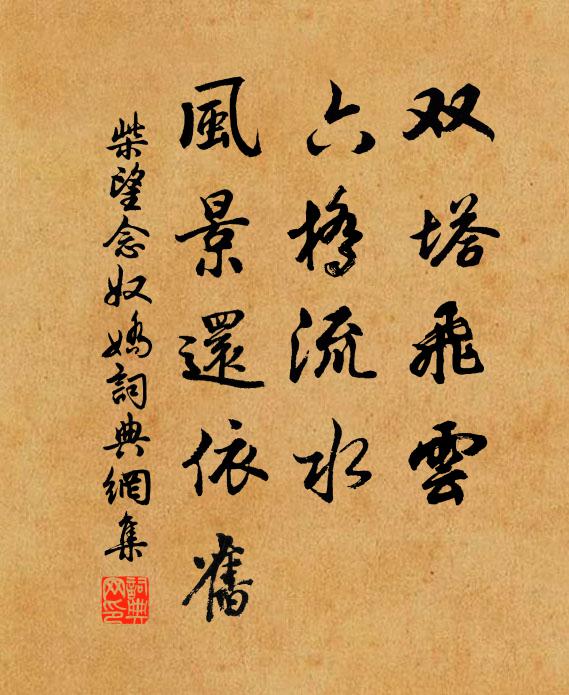 双塔飛雲
六橋流水
風景還依舊
柴望念奴嬌詞典網集
詞典網印